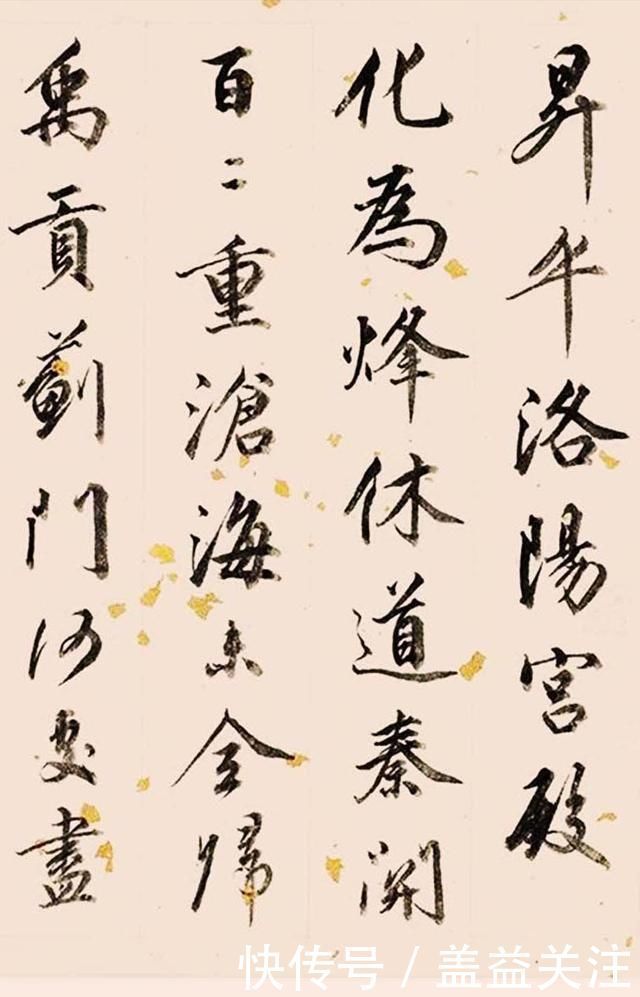 昇平洛陽宮殿
化為烽休道秦関
百二重滄海未全歸
禹貢薊門何處盡
快传号 / 盖益关注